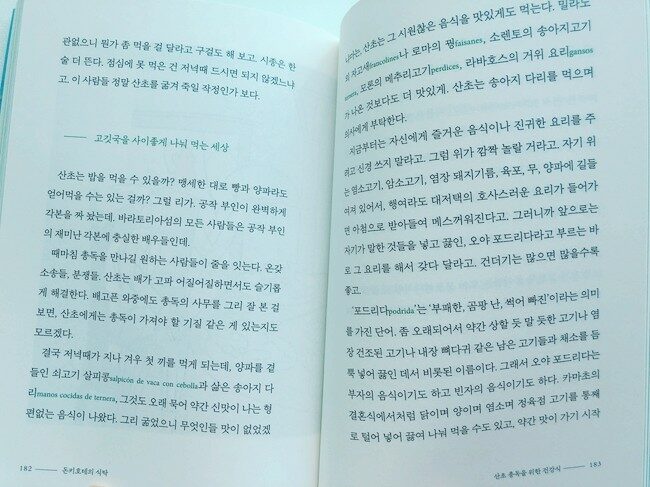 관없으니 뭔가 좀 먹을 걸 달라고 구걸도 해 보고. 시종은 한
술 더 뜬다. 점심에 못 먹은 건 저녁때 드시면 되지 않겠느냐
고. 이 사람들 정말 산초를 굶겨 죽일 작정인가 보다.
고깃국을 사이좋게 나눠 먹는 세상
산초는 밥을 먹을 수 있을까? 맹세한 대로 빵과 양파라도
얻어먹을 수는 있는 걸까? 그럴 리가. 공작 부인이 완벽하게
각본을 짜 놨는데, 바라토리아섬의 모든 사람들은 공작 부인
의 재미난 각본에 충실한 배우들인데.
때마침 총독을 만나길 원하는 사람들이 줄을 잇는다. 온갖
소송들, 분쟁들. 산초는 배가 고파 어질어질하면서도 슬기롭
게 해결한다. 배고픈 와중에도 총독의 사무를 그리 잘 본 걸
보면, 산초에게는 총독이 가져야 할 기질 같은 게 있는지도
모르겠다.
결국 저녁때가 지나 겨우 첫 끼를 먹게 되는데, 양파를 곁
들인 쇠고기 살피콩salpicón de vaca con cebolla과 삶은 송아지 다
리manos cocidas de ternera, 그것도 오래 묵어 약간 신맛이 나는 형
편없는 음식이 나왔다. 그리 굶었으니 무엇인들 맛이 없었겠
182 돈키호테의 식탁
나마는, 산초는 그 시원찮은 음식을 맛있게도 먹는다. 밀라노
의 자고새francolines나 로마의 꿩faisanes, 소렌토의 송아지고기
ternera, 모론의 메추리고기perdices, 라바호스의 거위 요리gansos
가 나온 것보다도 더 맛있게. 산초는 송아지 다리를 먹으며
의사에게 부탁한다.
지금부터는 자신에게 즐거운 음식이나 진귀한 요리를 주
려고 신경 쓰지 말라고. 그럼 위가 깜짝 놀랄 거라고. 자기 위
는 염소고기, 암소고기, 염장 돼지기름, 육포, 무, 양파에 길들
여져 있어서, 행여라도 대저택의 호사스러운 요리가 들어가
면 아첨으로 받아들여 메스꺼워진다고. 그러니까 앞으로는
자기가 말한 것들을 넣고 끓인, 오야 포드리다라고 부르는 바
로 그 요리를 해서 갖다 달라고. 건더기는 많으면 많을수록
좋고.
'포드리다podrida'는 '부패한, 곰팡 난, 썩어 빠진'이라는 의미
를 가진 단어. 좀 오래되어서 약간 상할 듯 말 듯한 고기나 염
장 건조된 고기나 내장 뼈다귀 같은 남은 고기들과 채소를 듬
뿍 넣어 끓인 데서 비롯된 이름이다. 그래서 오야 포드리다는
부자의 음식이기도 하고 빈자의 음식이기도 하다. 카마초의
결혼식에서처럼 닭이며 양이며 염소며 정육점 고기를 통째
로 털어 넣어 끓여 나눠 먹을 수도 있고, 약간 맛이 가기 시작
산초 총독을 위한 건강식 183